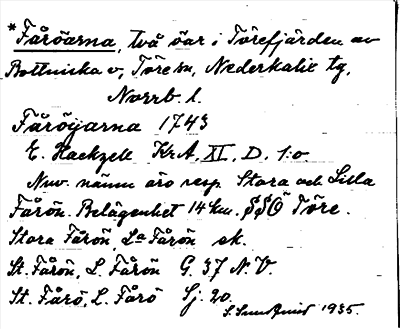 *Fåröarna, två öar i Törefjärden av
Bottniska v, Töre sn, Nederkalix tg,
Norrb. l.
Fåröijarna 1743
E. Hackzell KrA, XI, D. 1:o
Nuv. namn äro resp. Stora och Lilla
Fårön. Belägenhet 14 km. SSÖ Töre.
Stora Fårön, La Fårön ek.
St. Fårön, L. Fårön G. 37 N.V.
St. Fårö, L. Fårö Sj. 20.
1935.